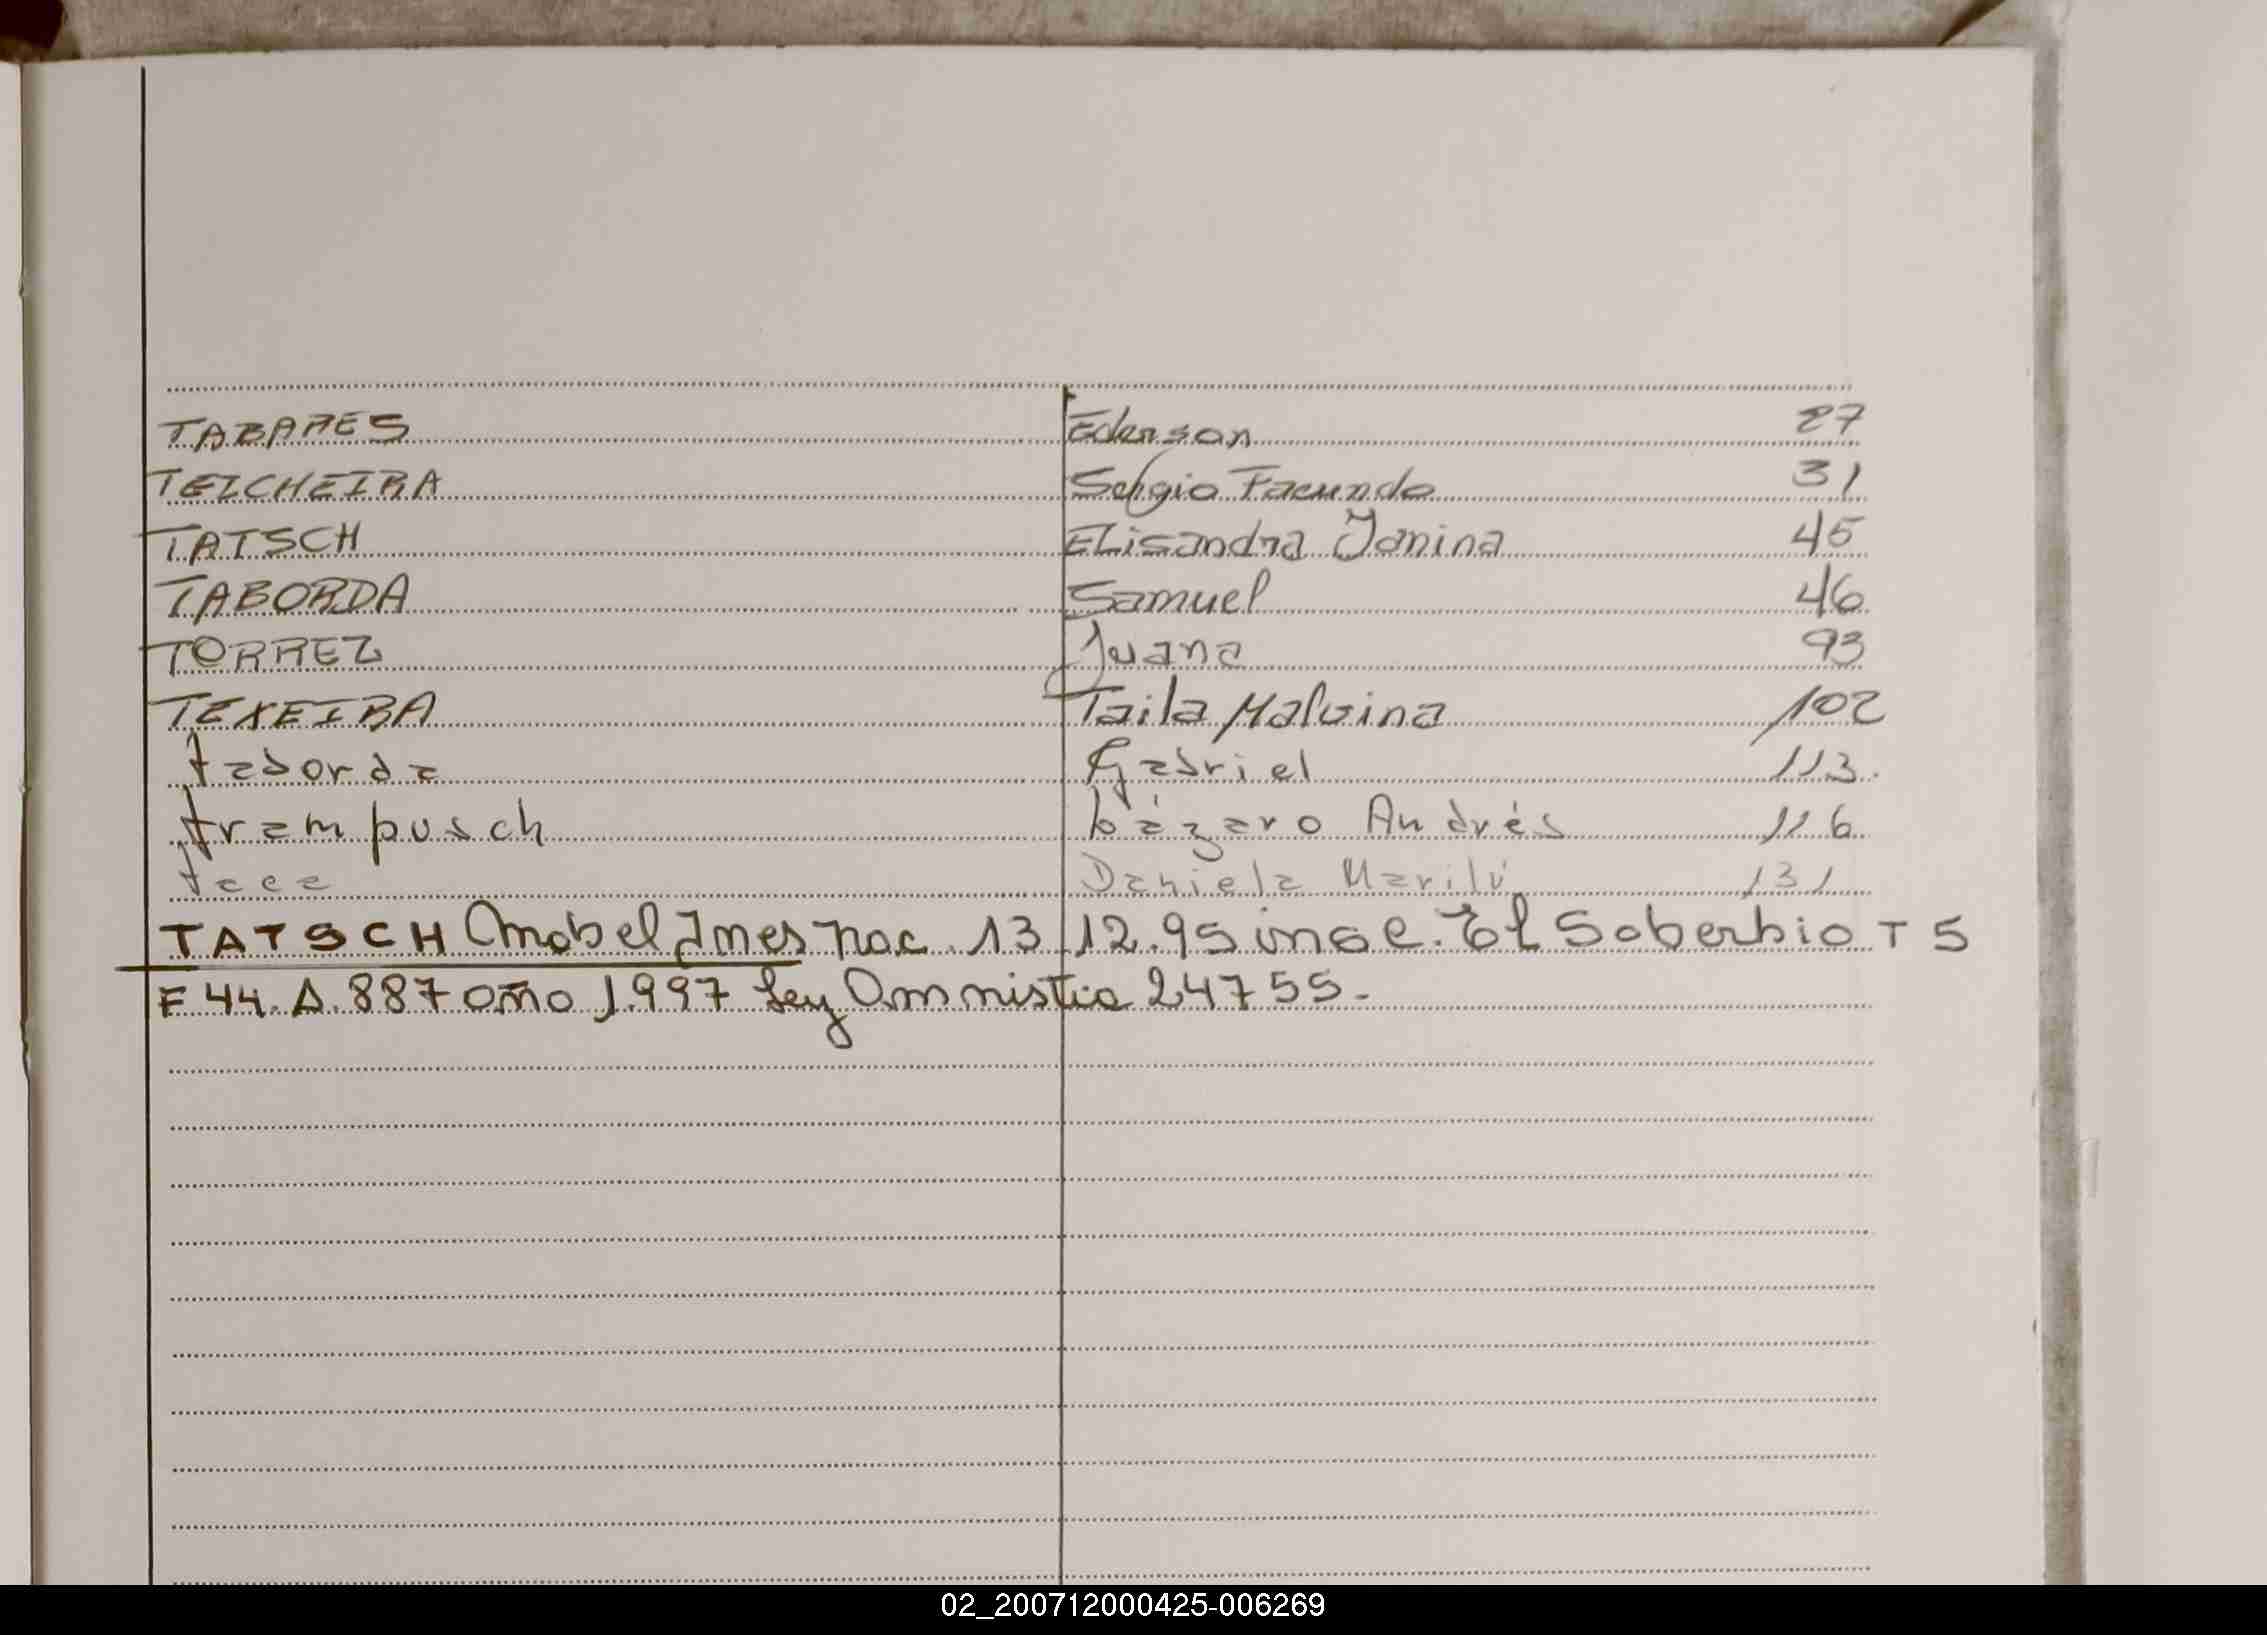 TABARES Ederson 27
TEICHEIRA Sergio Facundo 31
TATSCH Elisandra Janina 45
TABORDA Samuel 46
TORREZ Juana 93
TEXEIRA Taila Malvina 102
taborda Gabriel 113.
trampusch Lázaro Andrés 116
Daniela Marilú 131
TATSCH Mabel Ines nac. 13 12.95 insc. El Soberbio T 5
F 44. A. 887 año 1.997 Ley Amnistia 24755-
02_200712000425-006269